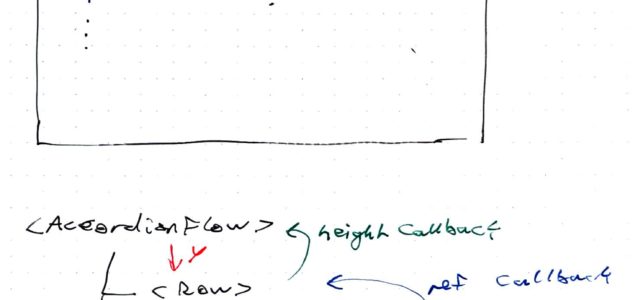 <AccordianFlow> height callback
y
<Row> ref callback